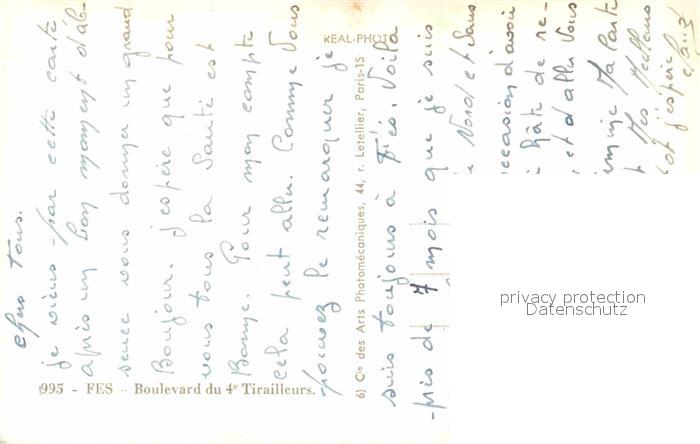 Chers Tous.
je viens par cette carte
après un bon moment d'ab-
sence vous donner un grand
Bonjour. J'espère que pour
vous tous la Santé est
Bonne. Pour mon compte
cela peut aller. Comme Vous
pouvez le remarquer je
suis toujours à Fès. Voilà
près de 7 mois que je suis
Nord et Sans
occasion d'avoir
Hâte de re-
et d'aller Vous
Ma Carte
Mes Meilleurs
j'espère
995 - FES - Boulevard du 4e Tirailleurs.
REAL-PHOTO
6) Cie des Arts Photomécaniques, 44, r. Letellier, Paris-15
privacy protection
Datenschutz